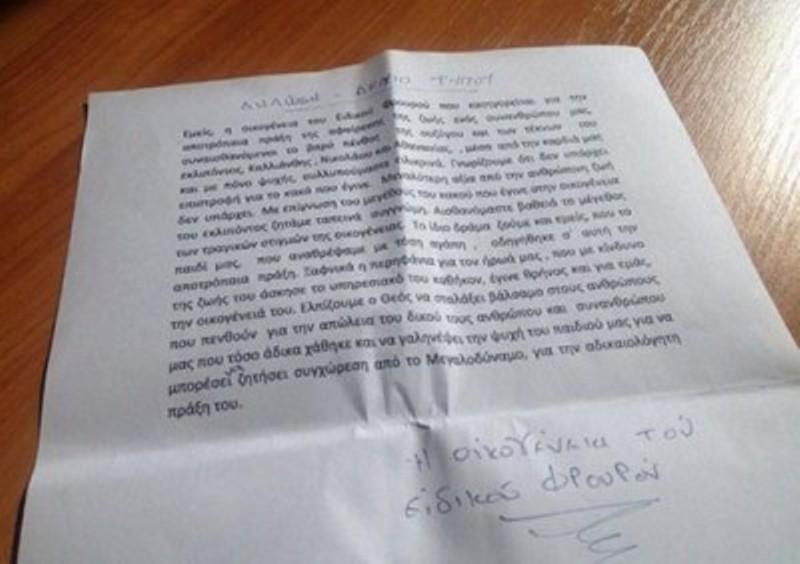 ΔΗΛΩΣΗ - ΔΕΛΤΙΟ ΤΥΠΟΥ
Εμείς, η οικογένεια του Ειδικού Φρουρού που κατηγορείται για την
αποτρόπαια πράξη της αφαίρεσης της ζωής ενός συνανθρώπου μας,
συναισθανόμενοι το βαρύ πένθος της συζύγου και των τέκνων του
εκλιπόντος, Καλλιάνθης, Νικολάου και Αθανασίας, μέσα από την καρδιά μας
και με πόνο ψυχής, συλλυπούμαστε ειλικρινά. Γνωρίζουμε ότι δεν υπάρχει
επιστροφή για το κακό που έγινε. Μεγαλύτερη αξία από την ανθρώπινη ζωή
δεν υπάρχει. Με επίγνωση του μεγέθους του κακού που έγινε στην οικογένεια
του εκλιπόντος ζητάμε ταπεινά συγγνώμη. Αισθανόμαστε βαθειά το μέγεθος
των τραγικών στιγμών της οικογένειας. Το ίδιο δράμα ζούμε και εμείς, που το
παιδί μας, που αναθρέψαμε με τόση αγάπη, οδηγήθηκε σ' αυτή την
αποτρόπαια πράξη. Ξαφνικά η περηφάνια για τον ήρωά μας, που με κίνδυνο
της ζωής του άσκησε το υπηρεσιακό του καθήκον, έγινε θρήνος και για εμάς,
την οικογένειά του. Ελπίζουμε ο Θεός να σταλάξει βάλσαμο στους ανθρώπους
που πενθούν για την απώλεια του δικού τους ανθρώπου και συνανθρώπου
μας που τόσο άδικα χάθηκε και να γαληνέψει την ψυχή του παιδιού μας για να
μπορέσει να ζητήσει συγχώρεση από το Μεγαλοδύναμο, για την αδικαιολόγητη
πράξη του.
Η οικογένεια του
ειδικού φρουρού